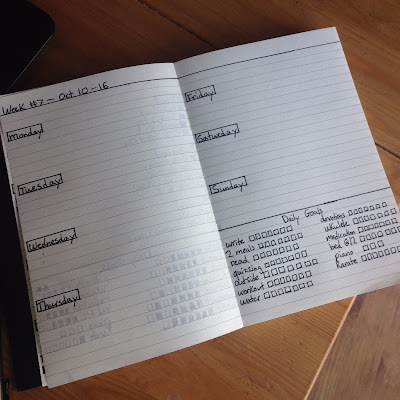 Week #7 - Oct 10-16
Monday
Tuesday
Wednesday
Thursday
Friday
Saturday
Sunday
Daily Goals
write
2 meals
read
quizzing
outside
workout
water
devotions
Ukulele
medication
bed @
Piano
Karate